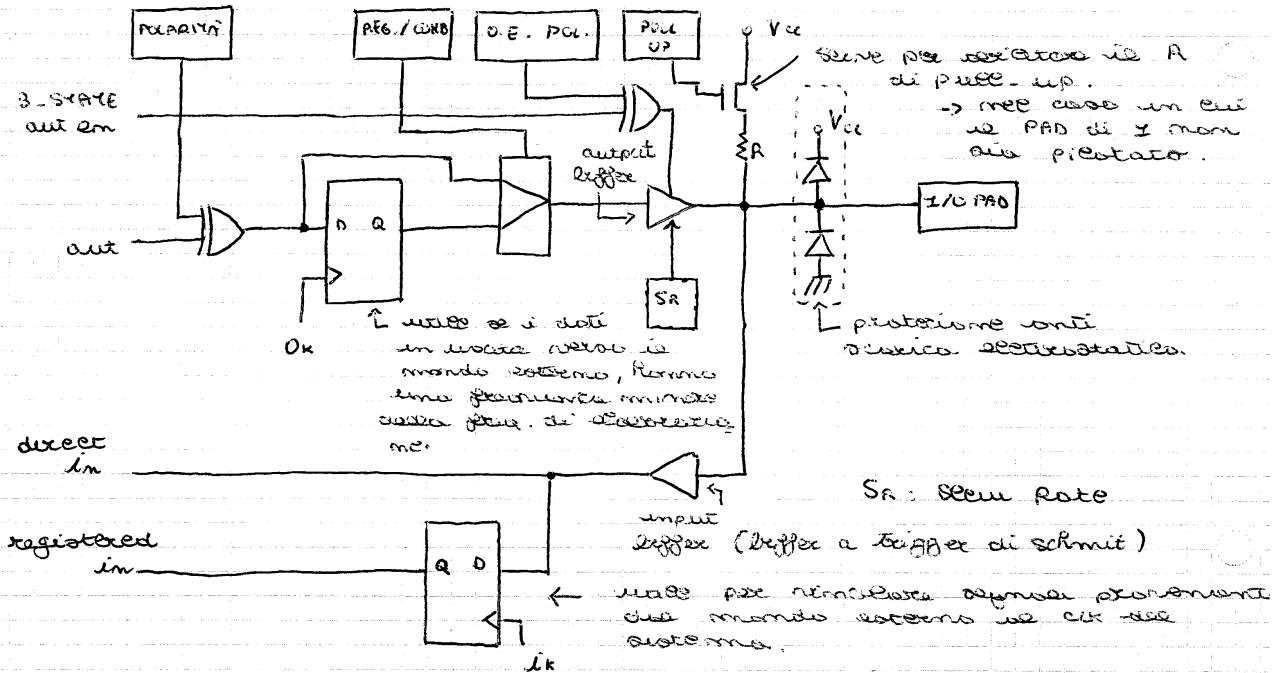 POLARITÀ
REG./COMB
O.E. POL.
PULL
UP
Vcc
serve per
il R
di pull-up.
→ nel caso in cui
il PAD di I non
sia pilotato.
3-STATE
out en
Vcc
R
output
buffer
I/O PAD
out
D Q
SR
Ok
utile se i dati
in uscita verso il
mondo esterno, hanno
una frequenza minore
della freq. di elaborazio
ne.
protezione anti
scarica elettrostatica.
direct
in
SR: Slew Rate
input
buffer (buffer a trigger di schmit)
registered
in
Q D
utile per segnali provenienti
dal mondo esterno al ck del
sistema.
ik